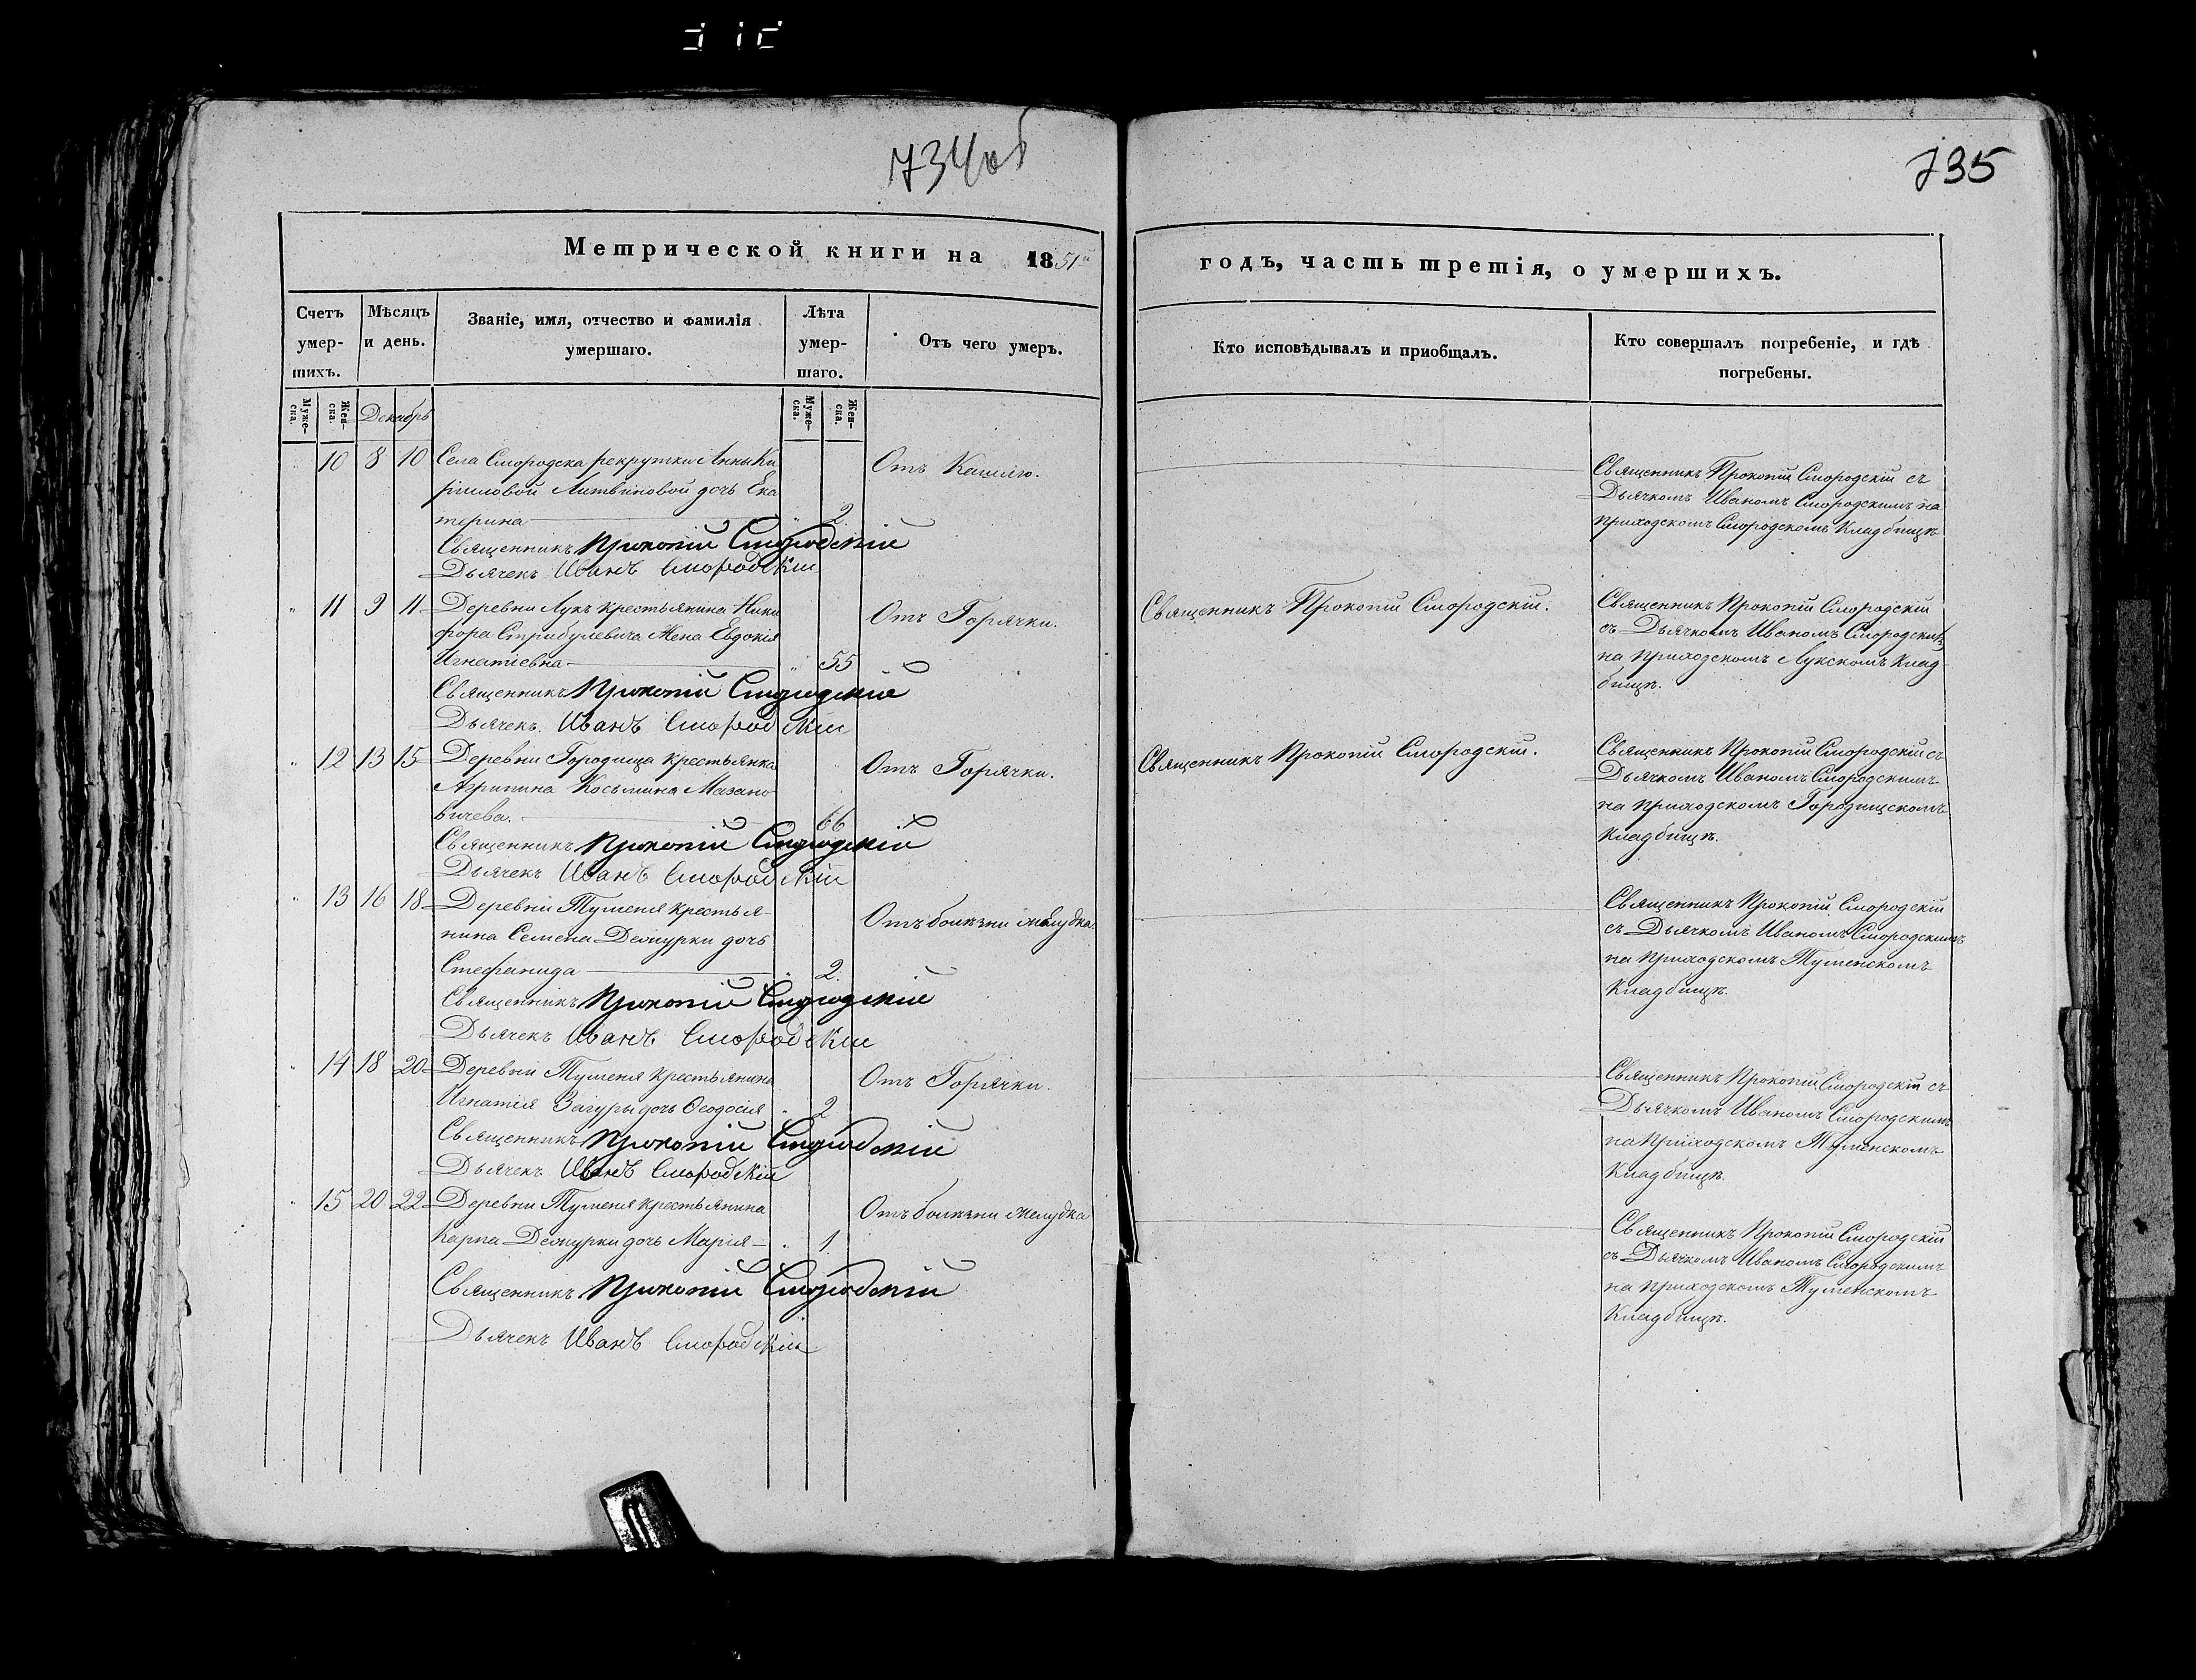 734об
Метрической книги на 1851й
Счетъ умер-шихъ.
Мѣсяцъ и день.
Званіе, имя, отчество и фамилія умершаго.
Лѣта умер-шаго.
Отъ чего умеръ.
Муже-ска.
Жен-ска.
Декабрь
Муже-ска.
Жен-ска.
10 8 10 Села Смородска рекрутки Анны Ки Отъ Кашлю.
риловой Литвиновой дочь Ека
терина 2
Священникъ Прокопій Смородскій
Дьячекъ Иванъ Смородскій
11 9 11 Деревни Лукъ крестьянина Ники Отъ Горячки.
фора Стрибулевича Жена Евдокія
Игнатіевна 55
Священникъ Прокопій Смородскій
Дьячекъ Иванъ Смородскій
12 13 15 Деревни Городища крестьянка Отъ Горячки.
Агрипина Косьмина Мазано
вичева. 66
Священникъ Прокопій Смородскій
Дьячекъ Иванъ Смородскій
13 16 18 Деревни Туменя крестья- Отъ болѣзни желудка
нина Семена дочь
Стефанида 2
Священникъ Прокопій Смородскій
Дьячекъ Иванъ Смородскій
14 18 20 Деревни Туменя крестьянина Отъ Горячки.
Игнатія Загуры дочь Ѳеодосія 2
Священникъ Прокопій Смородскій
Дьячекъ Иванъ Смородскій
15 20 22 Деревни Туменя крестьянина Отъ болѣзни желудка
Карпа дочь Марія 1
Священникъ Прокопій Смородскій
Дьячекъ Иванъ Смородскій
735
годъ, часть третія, о умершихъ.
Кто исповѣдывалъ и пріобщалъ.
Кто совершалъ погребеніе, и гдѣ
погребены.
Священникъ Прокопій Смородскій съ
Дьячкомъ Иваномъ Смородскимъ на
приходскомъ Смородскомъ Кладбищѣ
Священникъ Прокопій Смородскій. Священникъ Прокопій Смородскій
съ Дьячкомъ Иваномъ Смородскимъ
на приходскомъ Лукскомъ Клад-
бищѣ.
Священникъ Прокопій Смородскій. Священникъ Прокопій Смородскій съ
Дьячкомъ Иваномъ Смородскимъ
на приходскомъ Городищскомъ
Кладбищѣ.
Священникъ Прокопій Смородскій
съ Дьячкомъ Иваномъ Смородскимъ
на приходскомъ Туменскомъ
Кладбищѣ.
Священникъ Прокопій Смородскій съ
Дьячкомъ Иваномъ Смородскимъ
на Приходскомъ Туменскомъ
Кладбищѣ.
Священникъ Прокопій Смородскій
съ Дьячкомъ Иваномъ Смородскимъ
на приходскомъ Туменскомъ
Кладбищѣ.